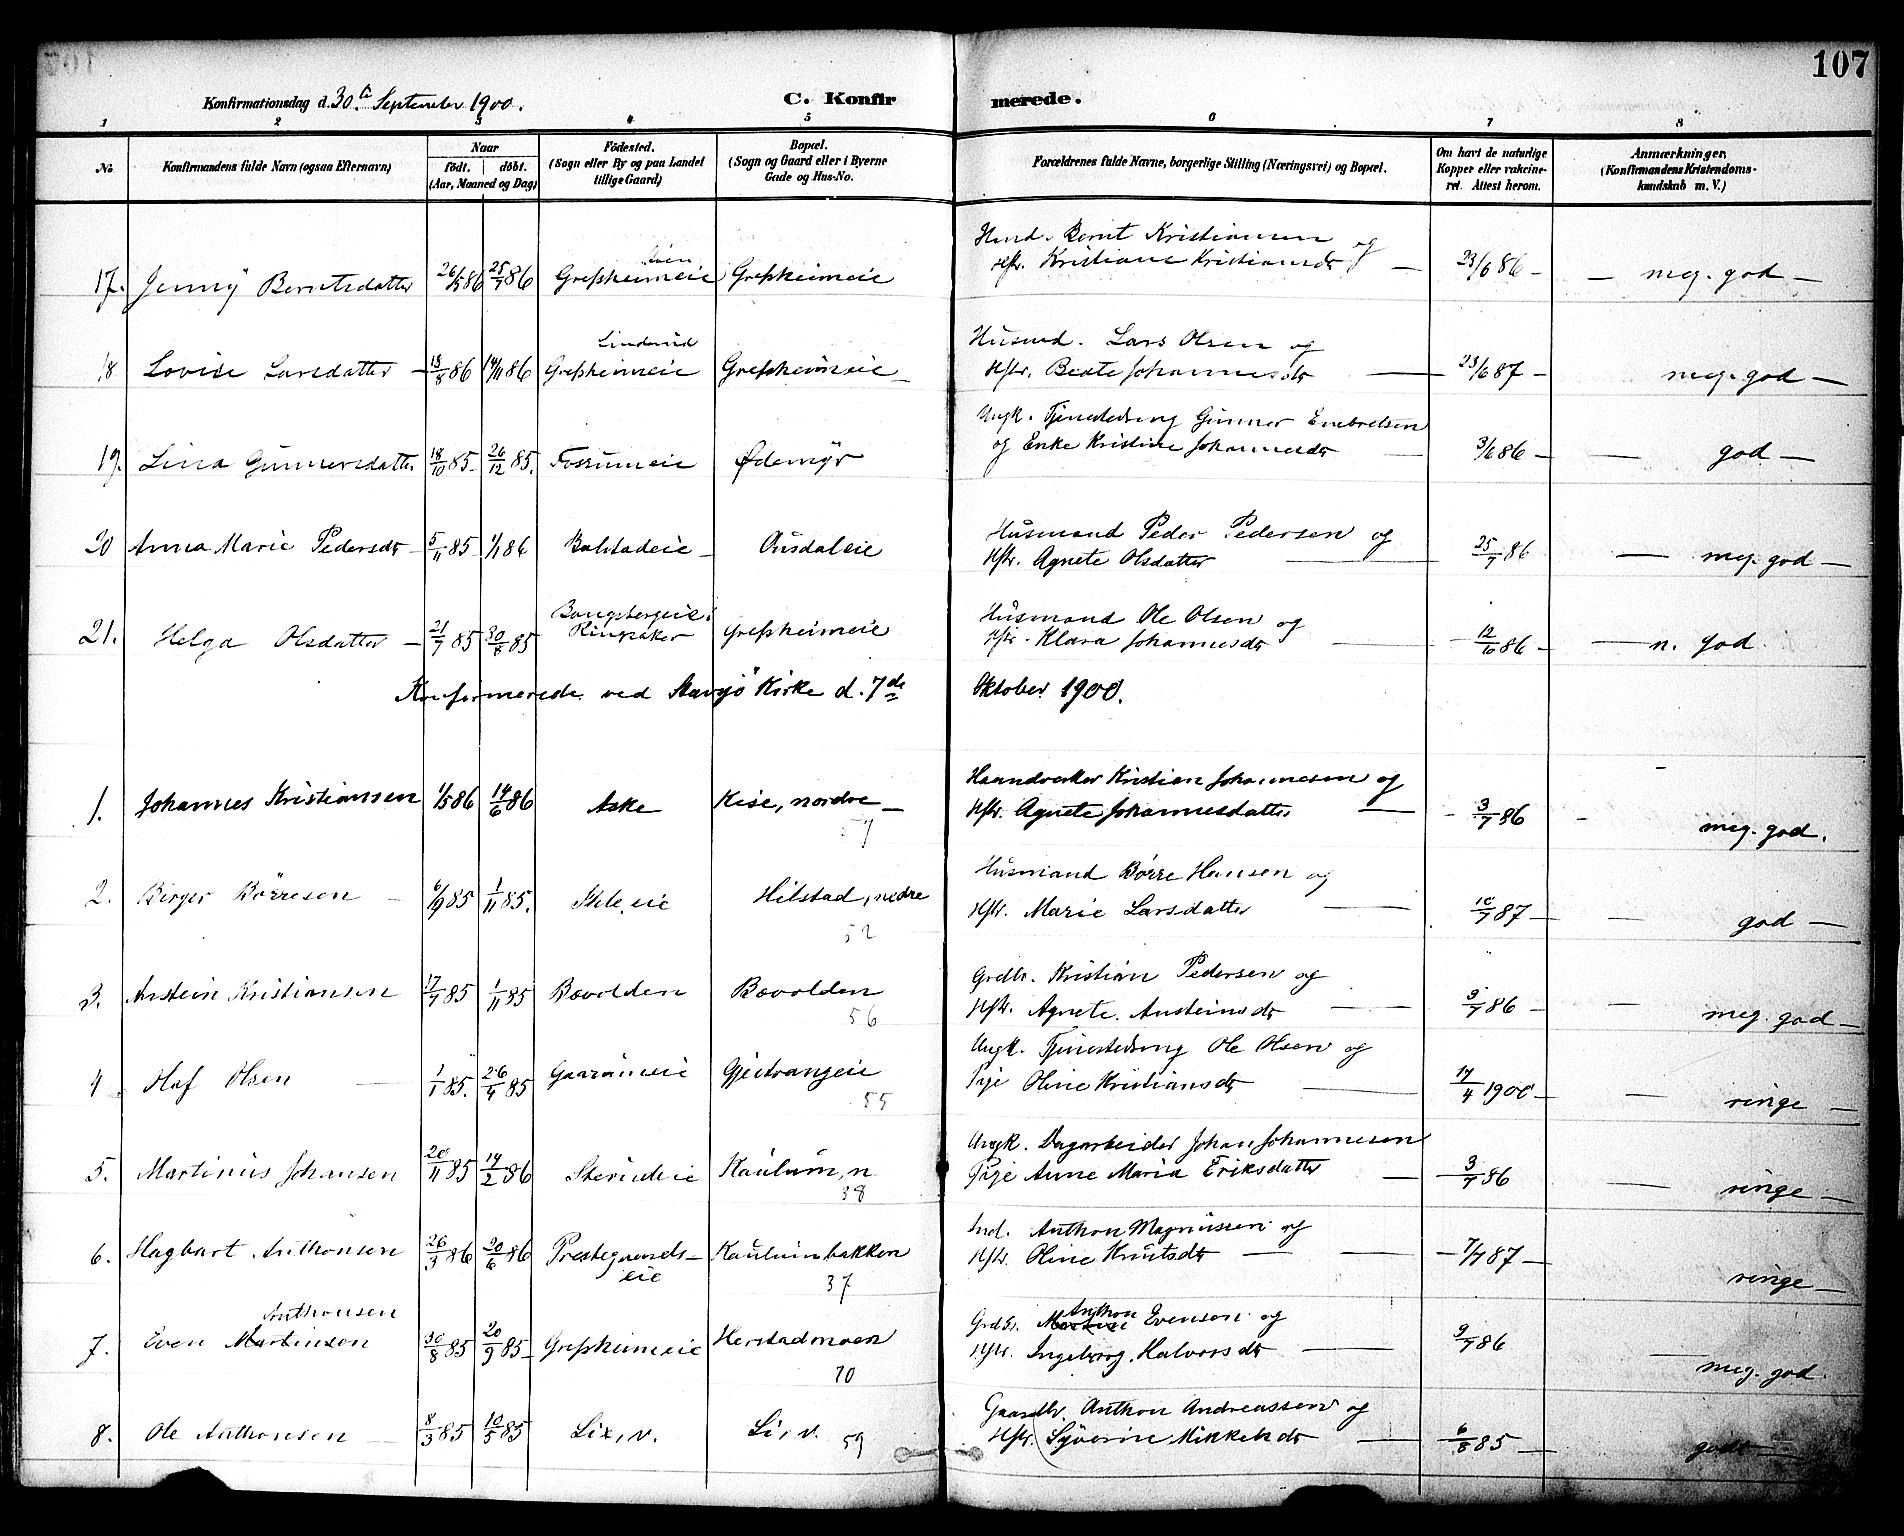 107
Konfirmationsdag d. 30te September 1900.
C. Konfirmerede.
1 2 3 4 5 6 7 8
No. Konfirmandens fulde Navn (ogsaa Efternavn) Naar født. døbt. (Aar, Maaned og Dag) Fødested. (Sogn eller By og paa Landet tillige Gaard) Bopæl. (Sogn og Gaard eller i Byerne Gade og Hus-No. Forældrenes fulde Navne, borgerlige Stilling (Næringsvei) og Bopæl. Om havt de naturlige Kopper eller vakcineret. Attest herom. Anmærkninger. (Konfirmandens Kristendomskundskab m. V.)
17. Jenny Berntsdatter 26/5 86 25/7 86 Grefsheimeie Grefsheimeie Husmd. Bernt Kristiansen og Hstr. Kristiane Kristiansdr 23/6 86 - meg. god -
18 Lovise Larsdatter - 13/8 86 14/11 86 Linderud Grefsheimeie Grefsheimeie Husmd. Lars Olsen og Hstr. Beate Johannesdr 23/6 87 - meg. god -
19. Lina Gunnersdatter 18/10 85 26/12 85. Fossumeie Ødemyr Ungk. Tjenestedreng Gunner Embretsen og Enke Kristine Johannesdr 3/6 86 - god -
20 Anna Marie Pedersdr 5/11 85 1/1 86 Balstadeie Ousdaleie Husmand Peder Pedersen og Hstr. Agnete Olsdatter 25/7 86 - meg. god -
21. Helga Olsdatter - 21/7 85 30/8 85 Bangsbergeie Ringsaker Grefsheimeie Husmand Ole Olsen og Hstr. Klara Johannesdr 12/6 86 - n. god.
Konfirmerede ved Stavsjø Kirke d. 7de Oktober 1900.
1. Johannes Kristiansen 1/5 86 14/6 86 Aske Kise, nordre 57 Haandverker Kristian Johannesen og Hstr. Agnete Johannesdatter 3/7 86 - meg. god.
2. Birger Børresen 6/9 85 1/11 85. Hilstad, nedre 52 Husmand Børre Hansen og Hstr. Marie Larsdatter 10/7 87 - god -
3. Anstein Kristiansen 17/9 85 1/11 85 Bævolden Bævolden 56 Grdbr. Kristian Pedersen og Hstr. Agnete Ansteinsdr 3/7 86 - meg. god -
4 Olaf Olsen 1/1 85. 26/4 85 Gaaraneie 55 Ungk. Tjenestedreng Ole Olsen og Pige Oline Kristiansdr 17/4 1900 - ringe -
5. Martinus Johansen 20/11 85 14/2 86 Kaulum, n 38 Ungk. Dagarbeider Johan Johannesen Pige Anne Maria Eriksdatter 3/7 86 - ringe -
6. Hagbart Anthonsen 26/3 86 20/6 86 Prestegaardseie Kaulumbakken 37 Ind. Anthon Magnussen og Hstr. Oline Knutsdr 7/7 87 - ringe -
7. Even Martinsen Anthonsen 30/8 85 20/9 85 Grefsheimeie Herstadmoen 70 Grdbr. Anthon Evensen og Hstr. Ingeborg Halvorsdr 9/7 86 - meg. god.
8. Ole Anthonsen 8/3 85 10/5 85 Lie, v. Li, v. 59 Gaardbr. Anthon Andreassen og Hstr. Syverine Mikkelsdr 6/8 85 - godt